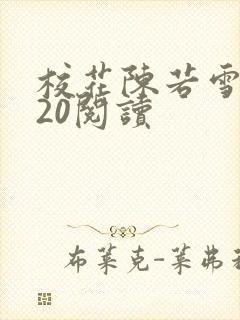 校花陳若雪
20閱讀
布萊克-萊弗利